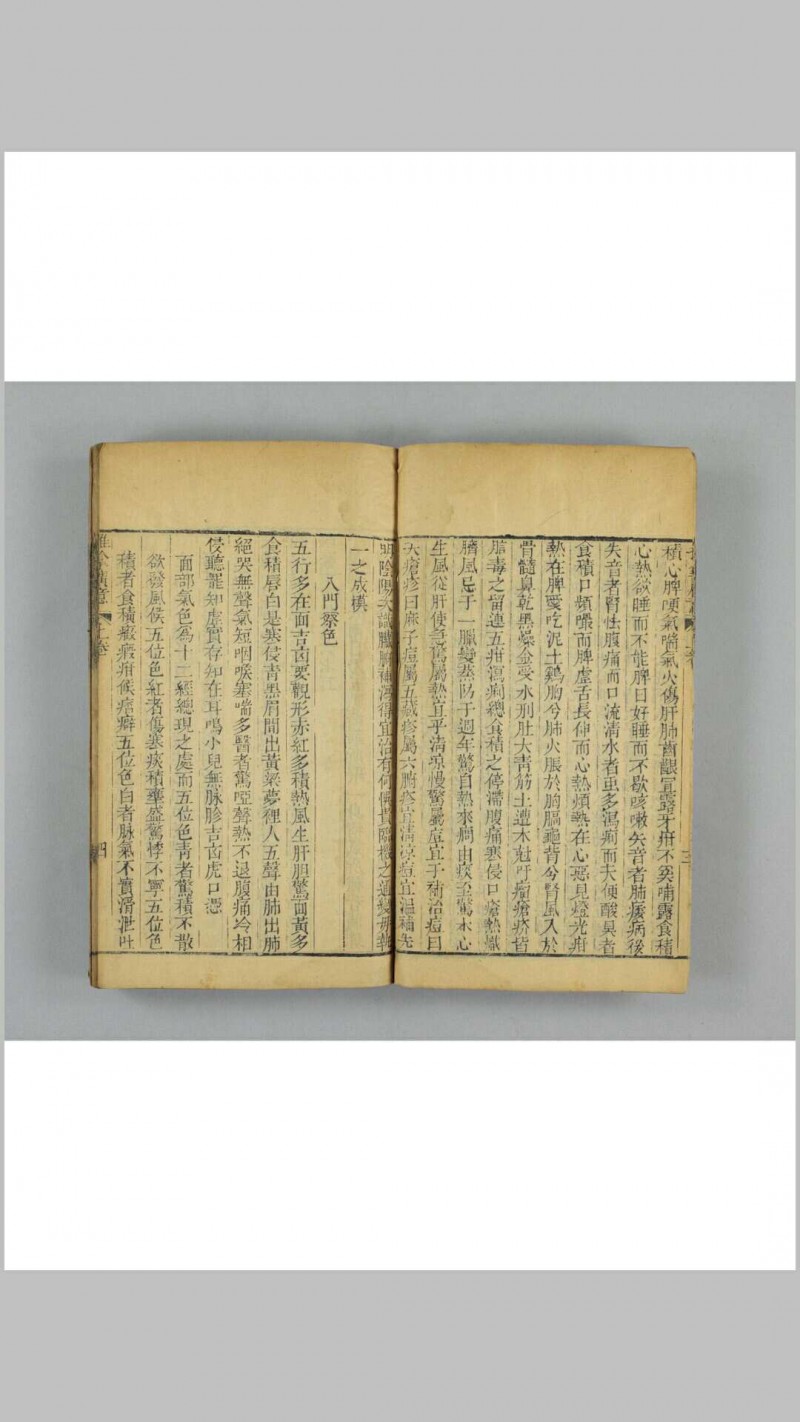 積心脾哽氣喘氣火傷肝肺齒齦宣露牙疳不奚哺露食積
心熱欲睡而不能脾日好睡而不歇咳嗽失音者肺痿病後
失音者腎怯腹痛而口流清水者虫多瀉痢而大便酸臭者
食積口頻噪而脾虚舌長伸而心熱煩熱在心惡見燈光疳
熱在脾愛吃泥土鷄胸兮肺火脹於胸膈龜背兮腎風入於
骨髓鼻乾黑燥金受水刑肚大青筋土遭木尅吁癎瘡疥皆
胎毒之留連五疳瀉痢總食積之停滯腹痛寒侵口瘡熱
臍風忌于一臘變蒸防于週年驚自熱來癎由痰至驚本心
生風從肝使急驚屬熱宜乎清凉慢驚屬虛宜于補治痘曰
天瘡疹曰麻子痘屬五藏疹屬六腑疹宜清凉痘宜温補先
明陰陽次識臟腑補瀉得宜治有何
一之成模
入門察色
五行多在面吉凶要觀形赤紅多積熱風生肝胆驚面黃多
食積唇白是寒侵青黑眉間出黃粱夢裡人五聲由肺出肺
絕哭無聲氣短咽喉塞喘多醫者驚啞聲熱不退腹痛冷相
侵聽罷知虛實存知在耳鳴小兒無脉胗吉凶虎口憑
面部氣色為十二經總現之處而五位色青者驚積不散
欲發風候五位色紅者傷寒痰積壅盛驚悸不寧五位色
積者食積癥瘕疳候痞癖五位色白者脉氣不實滑泄吐
推
上卷
四
三